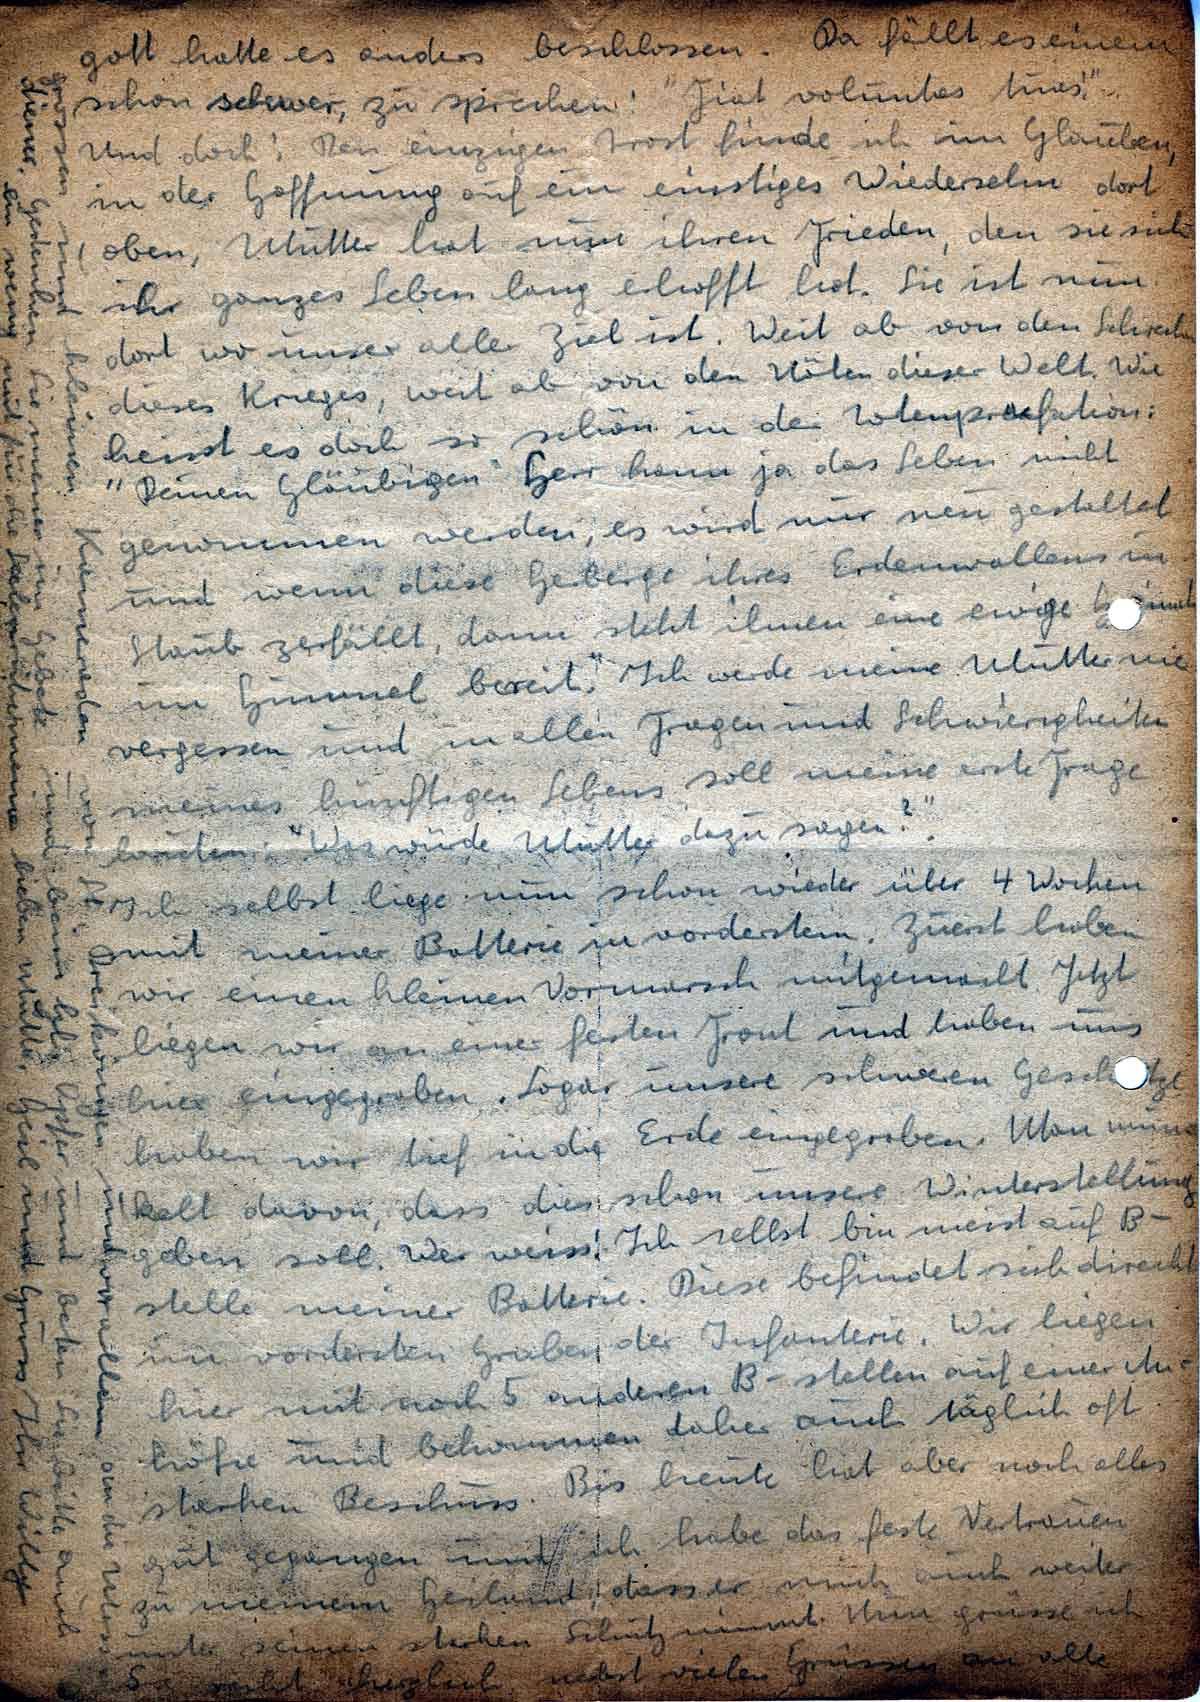 gott hatte es anders beschlossen. Da fällt es einem
schon schwer, zu sprechen! "Fiat voluntas tua!".
Und doch! Den einzigen Trost finde ich im Glauben,
in der Hoffnung auf ein einstiges Wiedersehn dort
oben, Mutter hat nun ihren Frieden, den sie sich
ihr ganzes Leben lang erhofft hat. Sie ist nun
dort wo unser aller Ziel ist. Weit ab von den Schrecken
dieses Krieges, weit ab von den Nöten dieser Welt. Wie
heisst es doch so schön in der Totenpraefation:
"Deinen Gläubigen Herr kann ja das Leben nicht
genommen werden, es wird nur neu gestaltet
und wenn diese Herberge ihres Erdenwallens in
Staub zerfällt, dann steht ihnen eine ewige Heimat
im Himmel bereit." Ich werde meine Mutter nie
vergessen und in allen Fragen und Schwierigkeiten
meines künftigen Lebens soll meine erste Frage
lauten: "Was würde Mutter dazu sagen?".
Ich selbst liege nun schon wieder über 4 Wochen
mit meiner Batterie in vorderstem. Zuerst haben
wir einen kleinen Vormarsch mitgemacht Jetzt
liegen wir an einer festen Front und haben uns
hier eingegraben. Sogar unsere schweren Geschütze
haben wir tief in die Erde eingegraben. Man mun-
kelt davon, dass dies schon unsere Winterstellung
geben soll. Wer weiss! Ich selbst bin meist auf B-
stelle meiner Batterie. Diese befindet sich direckt
im vordersten Graben der Infanterie. Wir liegen
hier mit noch 5 anderen B-stellen auf einer An-
höhe und bekommen daher auch täglich oft
starken Beschuss. Bis heute hat aber noch alles
gut gegangen und ich habe das feste Vertrauen
zu meinem Heiland, dass er mich auch weiter
unter seinen starken Schutz nimmt. Nun grüsse ich
Sie recht herzlich nebst vielen Grüssen an alle
grossen und kleinen Kameraden von Hl. Dreikönigen und vor allem an die
diener. Gedenken Sie meiner im Gebete und beim hlg. Opfer und beten Sie bitte auch
ein wenig mit für die Seele meiner lieben Mutter Heil und Gruss Ihr Willy